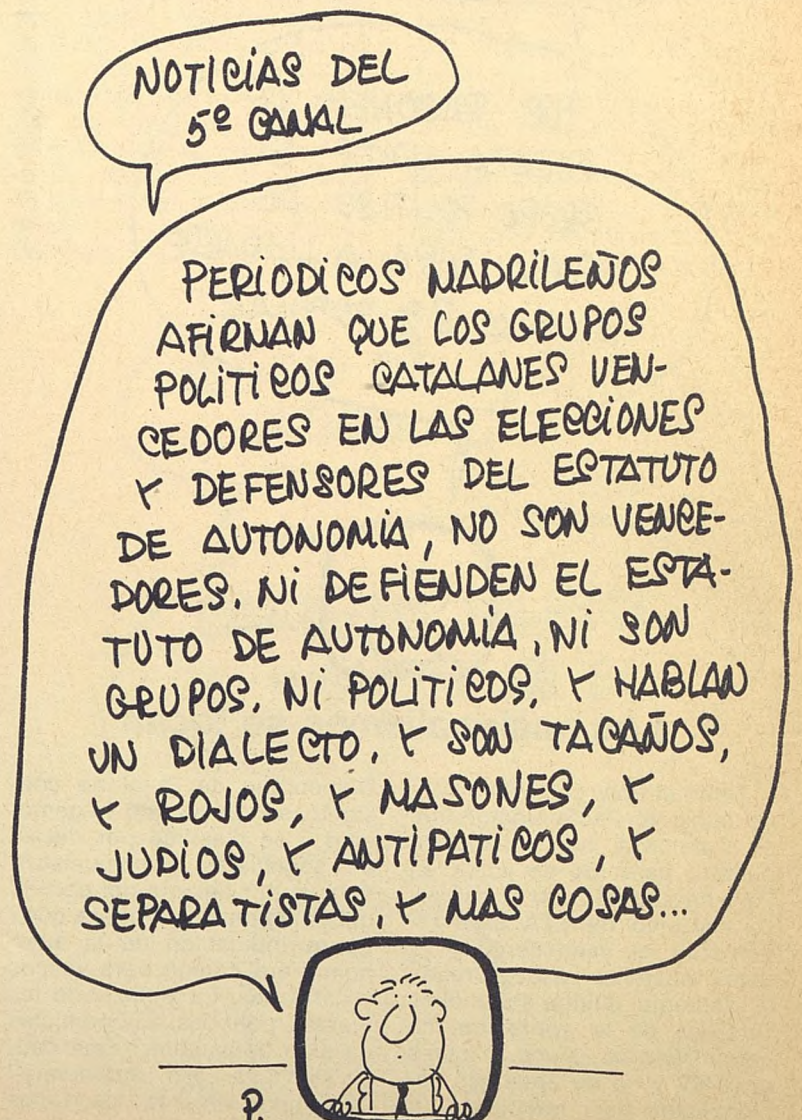 NOTICIAS DEL
5º CANAL
PERIODICOS MADRILEÑOS
AFIRMAN QUE LOS GRUPOS
POLITICOS CATALANES VEN-
CEDORES EN LAS ELECCIONES
Y DEFENSORES DEL ESTATUTO
DE AUTONOMIA, NO SON VENCE-
DORES, NI DEFIENDEN EL ESTA-
TUTO DE AUTONOMIA, NI SON
GRUPOS, NI POLITICOS, Y HABLAN
UN DIALECTO, Y SON TACAÑOS,
Y ROJOS, Y MASONES, Y
JUDIOS, Y ANTIPATICOS, Y
SEPARATISTAS, Y MAS COSAS...
P.